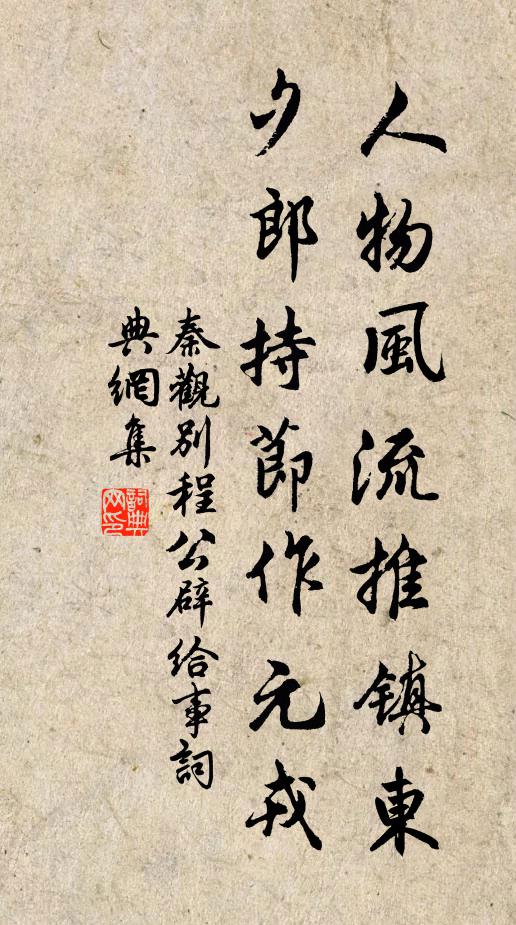 人物風流推鎮東
夕郎持節作元戎
秦觀別程公辟給事詞
典網集
詞典网印